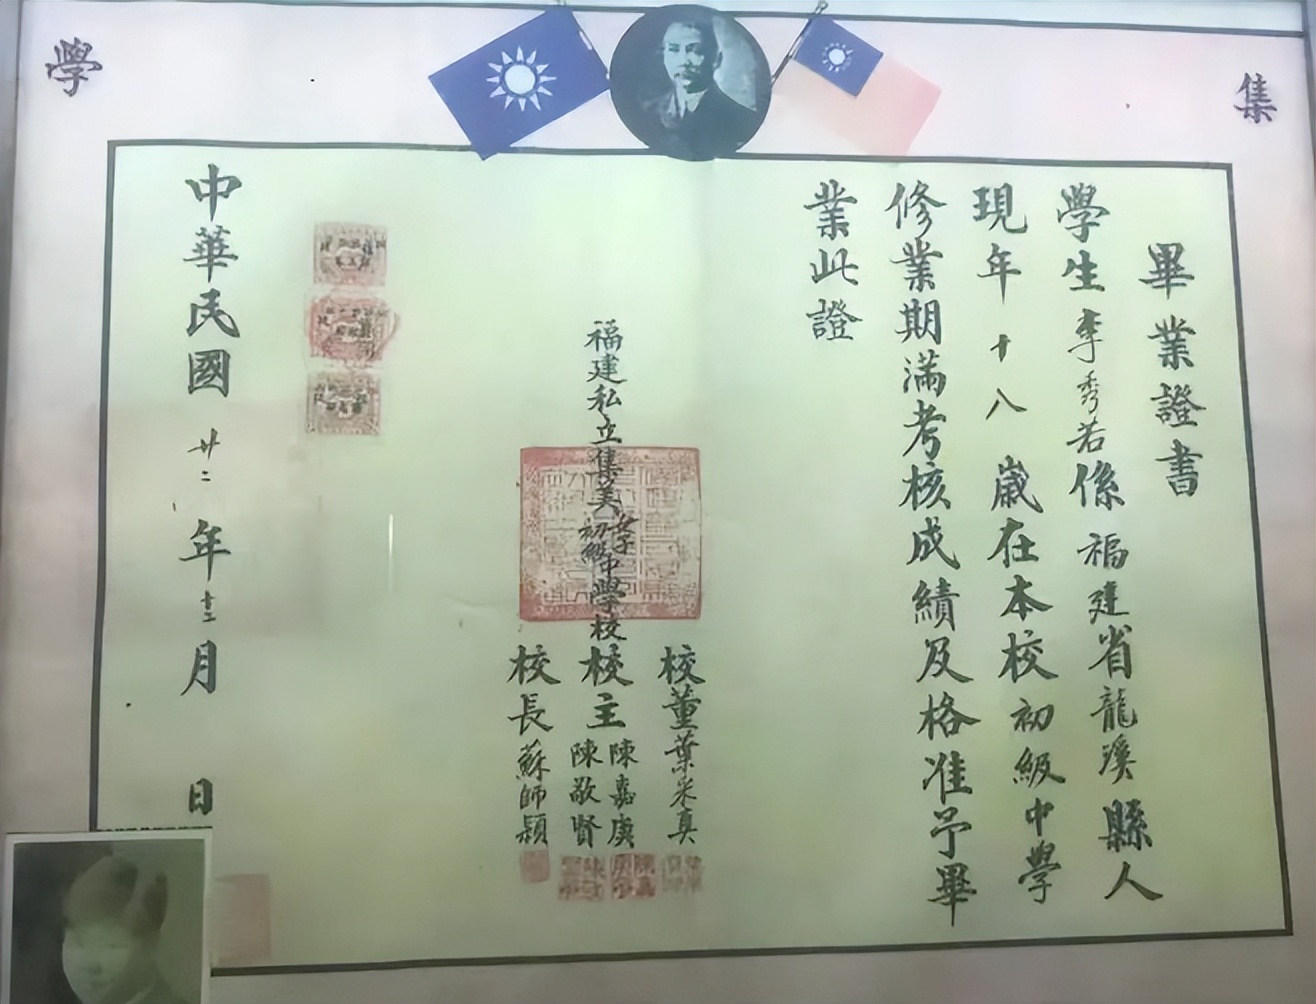 集
學
畢業證書
學生李秀若係福建省龍溪縣人
現年十八歲在本校初級中學
修業期滿考核成績及格准予畢
業此證
福建私立集美女子初級中學校
校董葉采真
校主陳嘉庚
陳敬賢
校長蘇師穎
中華民國廿二年十二月 日